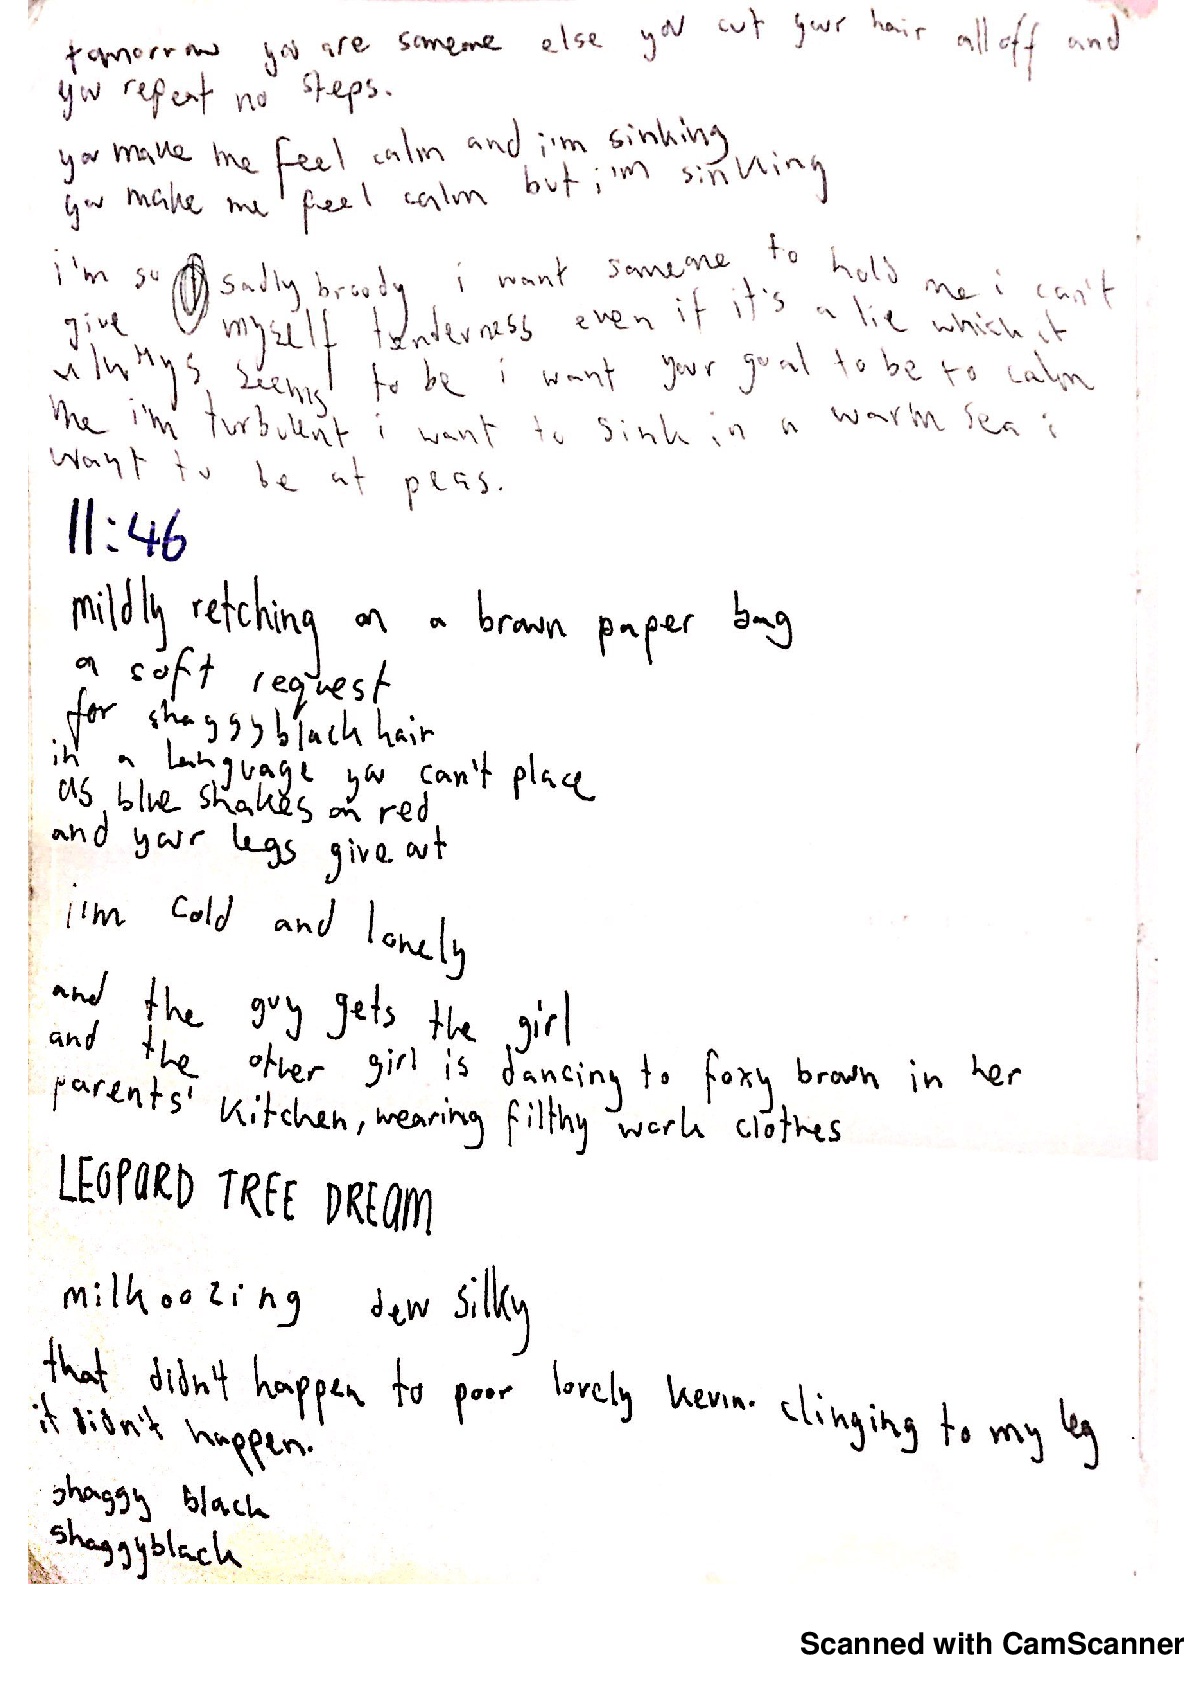 tomorrow you are someone else you cut your hair all off and
you repeat no steps.
you make me feel calm and i'm sinking
you make me feel calm but i'm sinking
i'm so sadly broody i want someone to hold me i can't
give myself tenderness even if it's a lie which it
always seems to be i want your goal to be to calm
me i'm turbulent i want to sink in a warm sea i
want to be at peas.
11:46
mildly retching on a brown paper bag
a soft request
for shaggyblack hair
in a language you can't place
as blue shakes on red
and your legs give out
i'm cold and lonely
and the guy gets the girl
and the other girl is dancing to foxy brown in her
parents' kitchen, wearing filthy work clothes
LEOPARD TREE DREAM
milkoozing dew silky
that didn't happen to poor lovely kevin. clinging to my leg
it didn't happen.
shaggy black
shaggyblack
Scanned with CamScanner